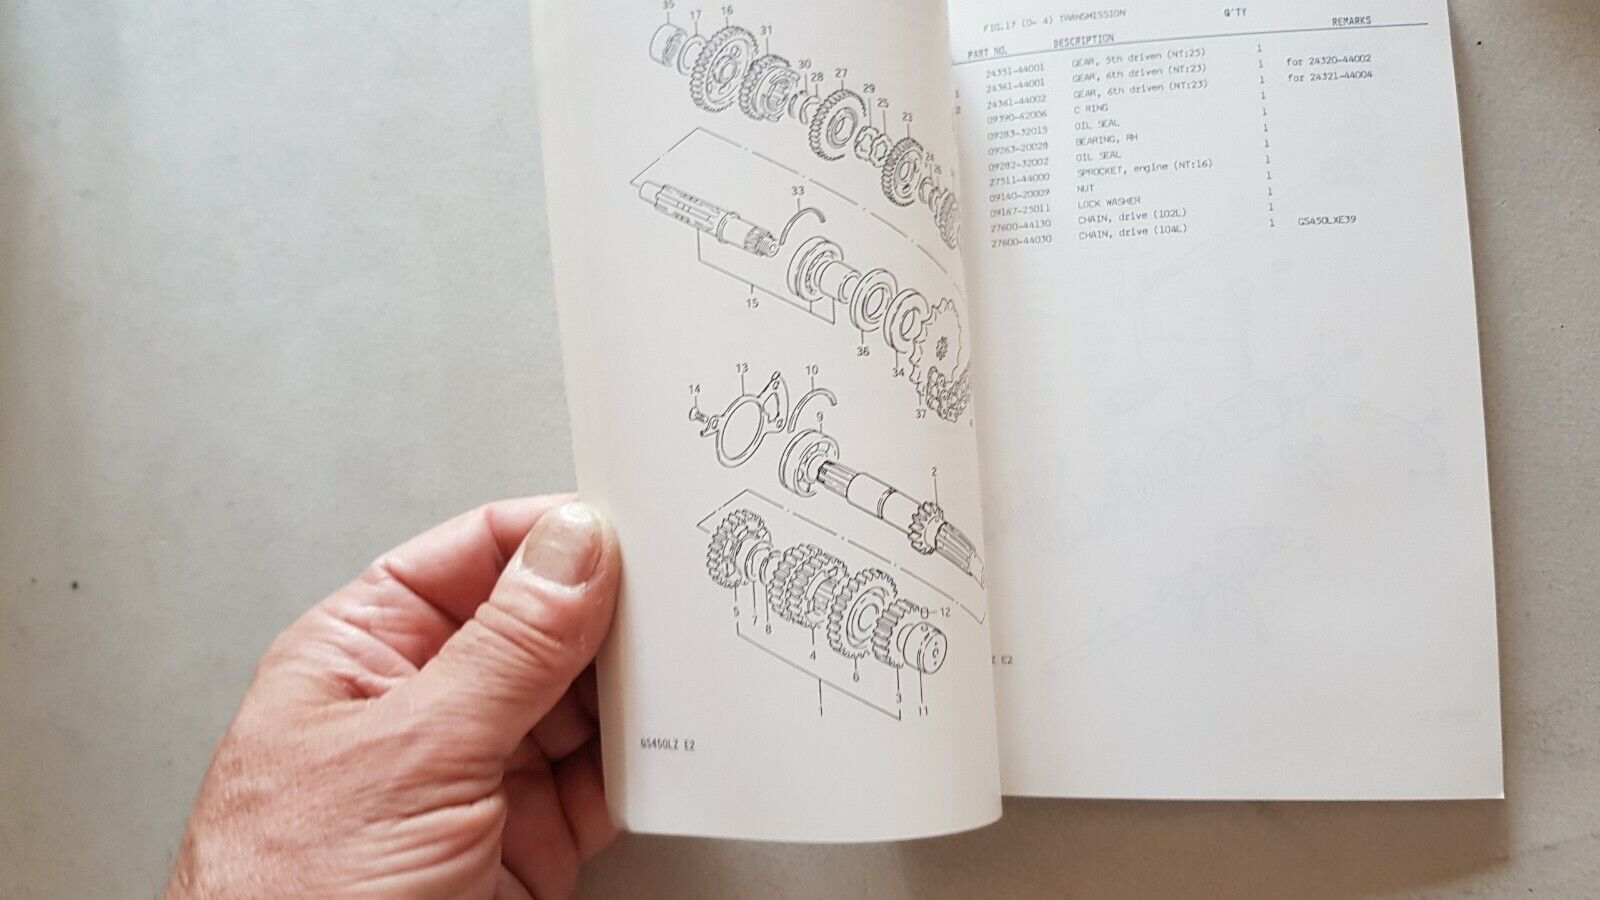 35
17
16
31
30
28
27
29
25
23
24
26
33
15
36
34
37
13
10
14
9
2
5
7
8
12
4
6
3
1
11
GS450LZ E2
FIG.17 (D- 4) TRANSMISSION
PART NO. DESCRIPTION Q'TY REMARKS
24351-44001 GEAR, 5th driven (NT:25) 1
1 24361-44001 GEAR, 6th driven (NT:23) 1 for 24320-44002
2 24361-44002 GEAR, 6th driven (NT:23) 1 for 24321-44004
09390-62006 C RING 1
09283-32015 OIL SEAL 1
09263-20028 BEARING, RH 1
09282-32002 OIL SEAL 1
27511-44000 SPROCKET, engine (NT:16) 1
09140-20009 NUT 1
09167-25011 LOCK WASHER 1
27600-44130 CHAIN, drive (102L) 1
27600-44030 CHAIN, drive (104L) 1 GS450LXE39
Z E2